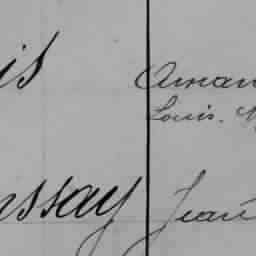 is
Aman
Louis. M
nssay
Jean